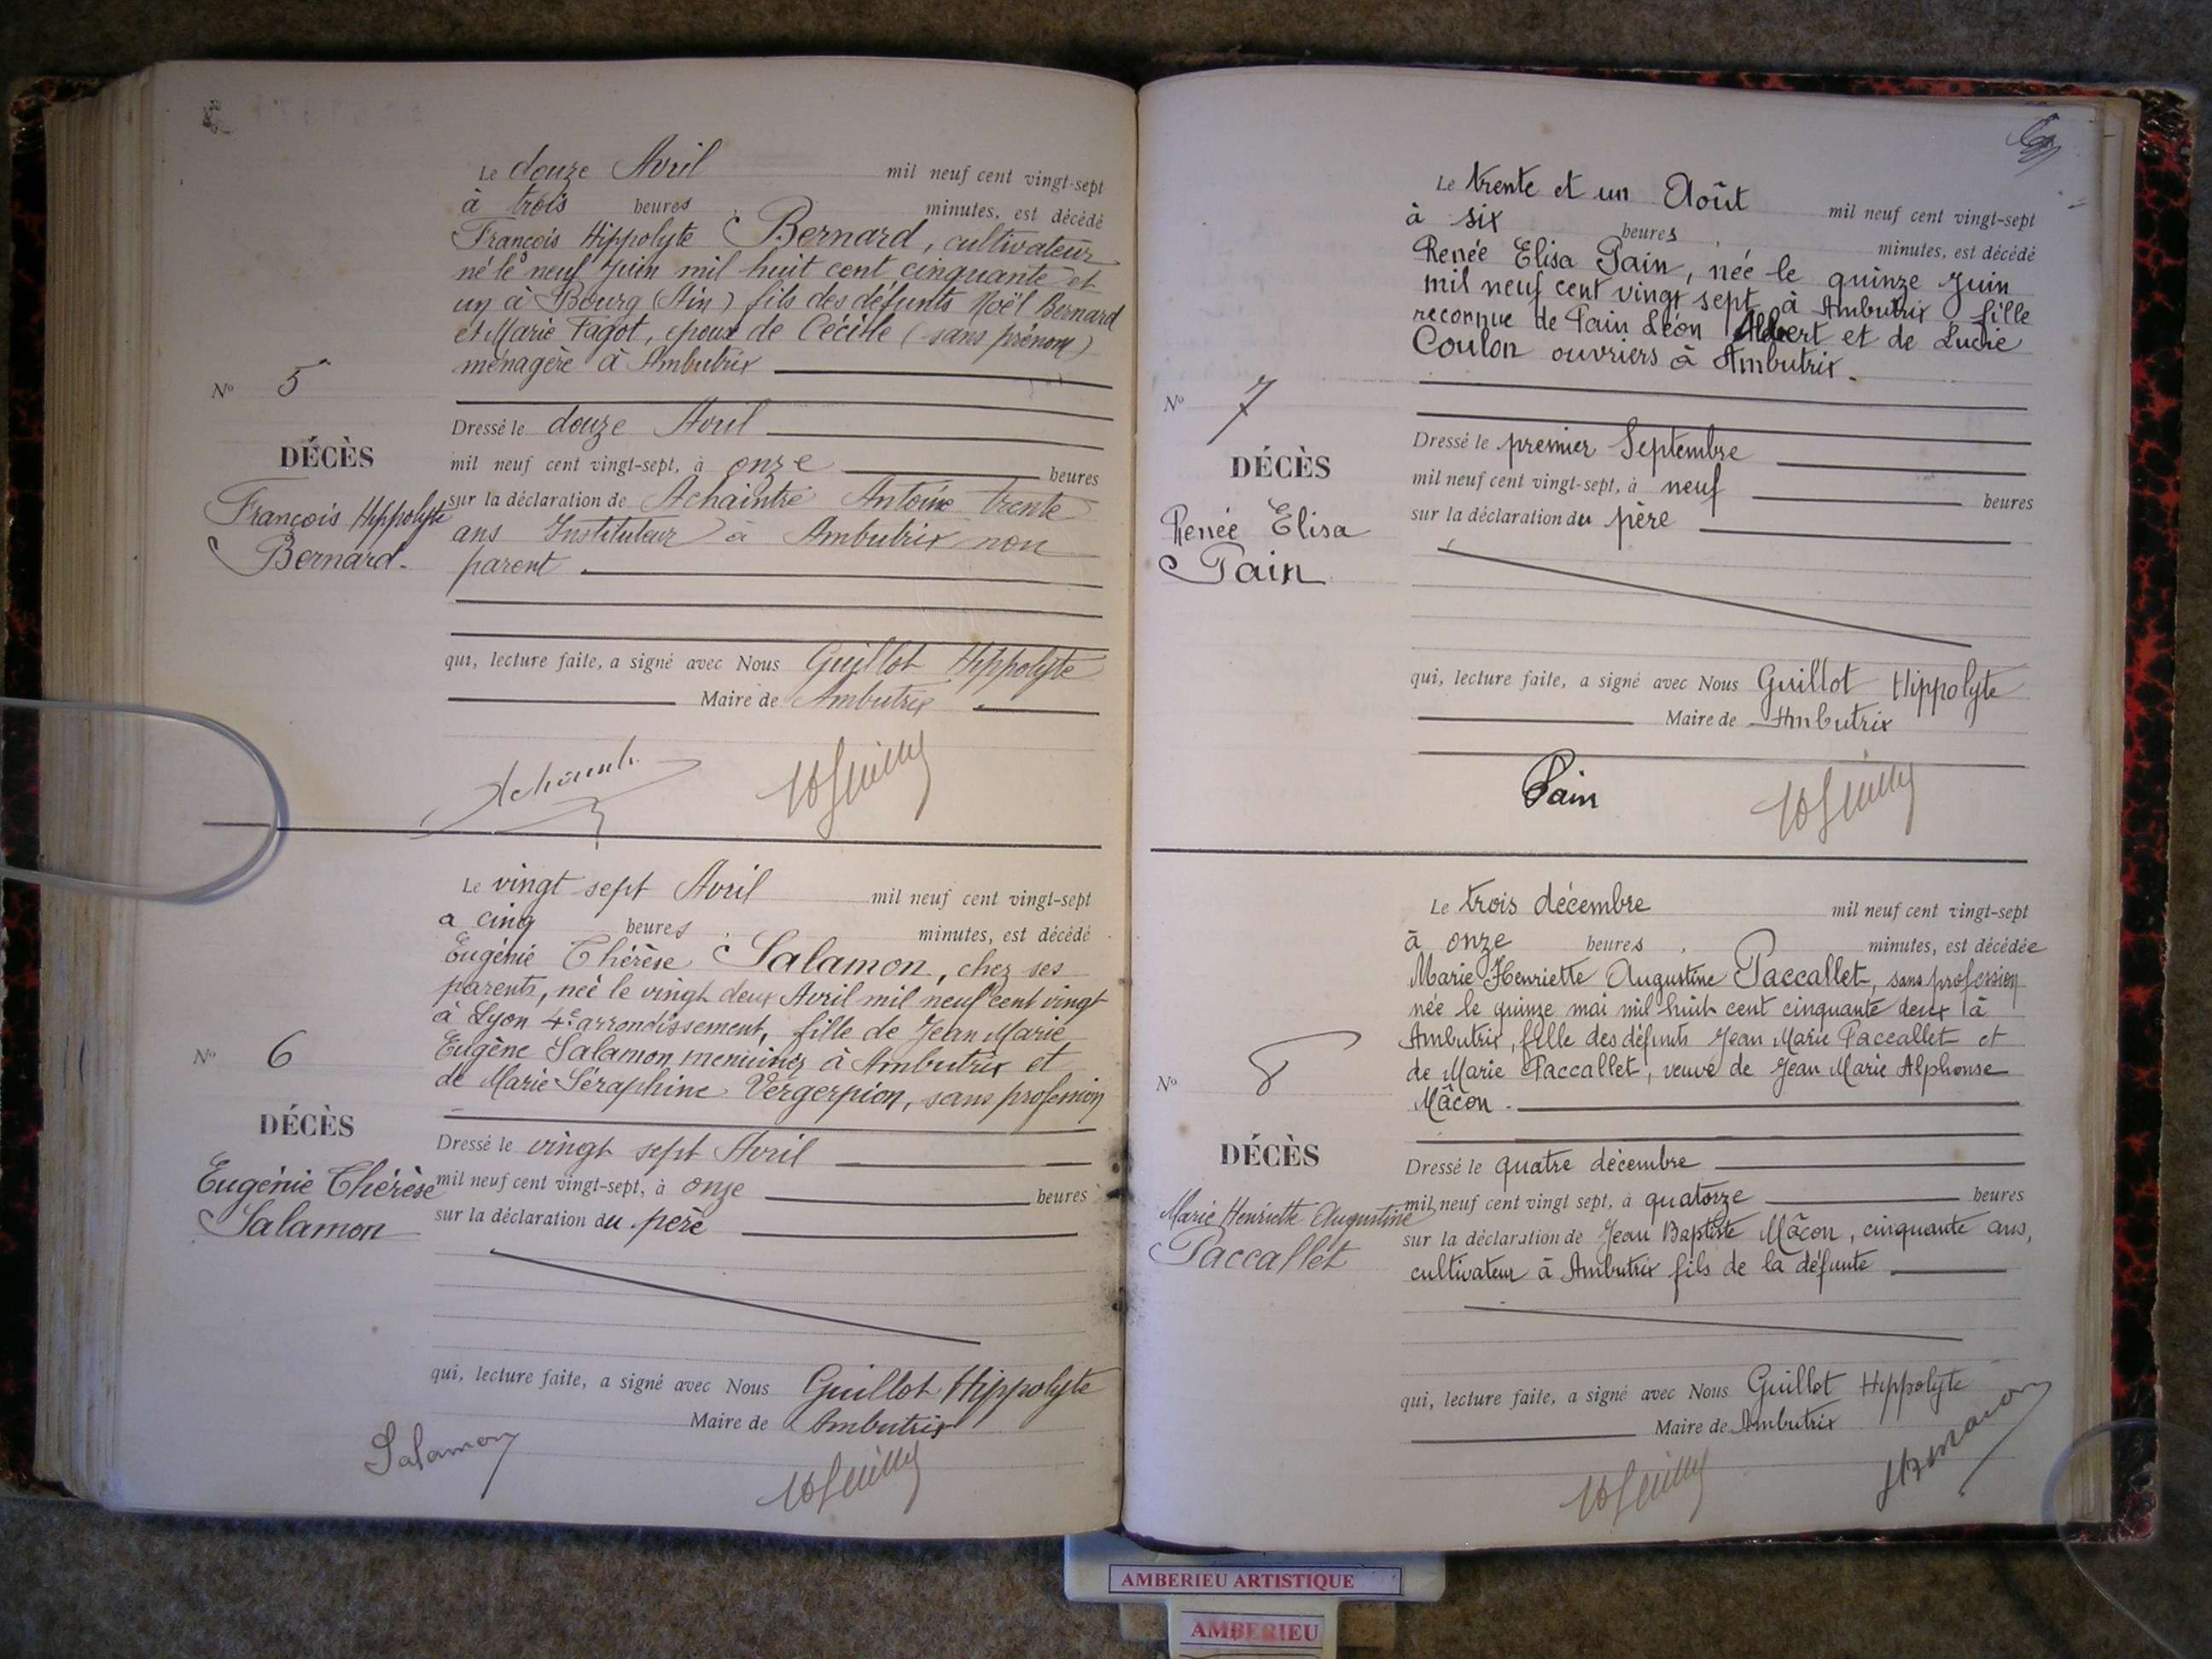 Le douze Avril mil neuf cent vingt-sept
à trois heures minutes, est décédé
François Hippolyte Bernard, cultivateur
né le neuf Juin mil huit cent cinquante et
un à Bourg (Ain) fils des défunts Noël Bernard
et Marie Fagot, époux de Cécille (sans prénom)
ménagère à Ambutrix
N° 5
Dressé le douze Avril
DÉCÈS
mil neuf cent vingt-sept, à onze heures
François Hippolyte
Bernard.
sur la déclaration de Achaintre Antoine trente
ans Instituteur à Ambutrix non
parent
qui, lecture faite, a signé avec Nous Guillot Hippolyte
Maire de Ambutrix
Le vingt sept Avril mil neuf cent vingt-sept
a cinq heures minutes, est décédé
Eugénie Thérèse Salamon, chez ses
parents, neé le vingt deux Avril mil neuf cent vingt
à Lyon 4e arrondissement, fille de Jean Marie
Eugène Salamon menuisier à Ambutrix et
de Marie Séraphine Vergerpion, sans profession
N° 6
DÉCÈS
Eugénie Thérèse
Salamon
Dressé le vingt sept Avril
mil neuf cent vingt-sept, à onze heures
sur la déclaration du père
qui, lecture faite, a signé avec Nous Guillot Hippolyte
Maire de Ambutrix
Salamon
Le trente et un Août mil neuf cent vingt-sept
à six heures minutes, est décédé
Renée Elisa Pain, née le quinze Juin
mil neuf cent vingt sept à Ambutrix fille
reconnue de Pain Léon Albert et de Lucie
Coulon ouvriers à Ambutrix.
N° 7
DÉCÈS
Renée Elisa
Pain
Dressé le premier Septembre
mil neuf cent vingt-sept, à neuf heures
sur la déclaration du père
qui, lecture faite, a signé avec Nous Guillot Hippolyte
Maire de Ambutrix
Pain
Le trois décembre mil neuf cent vingt-sept
à onze heures minutes, est décédée
Marie Henriette Augustine Paccallet, sans profession
née le quinze mai mil huit cent cinquante deux à
Ambutrix, fille des défunts Jean Marie Paccallet et
de Marie Paccallet, veuve de Jean Marie Alphonse
Mâcon.
N° 8
DÉCÈS
Marie Henriette Augustine
Paccallet
Dressé le quatre décembre
mil neuf cent vingt sept, à quatorze heures
sur la déclaration de Jean Baptiste Mâcon, cinquante ans,
cultivateur à Ambutrix fils de la défunte
qui, lecture faite, a signé avec Nous Guillot Hippolyte
Maire de Ambutrix
AMBERIEU ARTISTIQUE
AMBERIEU